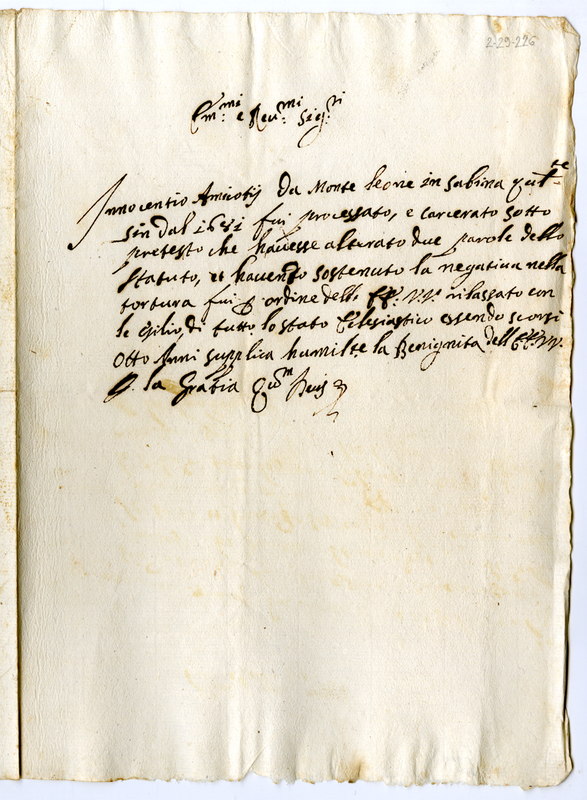 2-29-226
Em.mi e Reu.mi Sig.ri
Innocentio Amiotij da Monte leone in sabina
sin dal 1651 fui processato, e carcerato sotto
pretesto che hauesse alterato due parole dello
statuto, et hauendo sostenuto la negatiua nella
tortura fui p ordine dell' EE. VV. rilassato con
le esilio, di tutto lo stato Eclesiastico essendo scorsi
Otto Anni supplica humilte la Benignita dell' EE. VV.
p. la Gratia